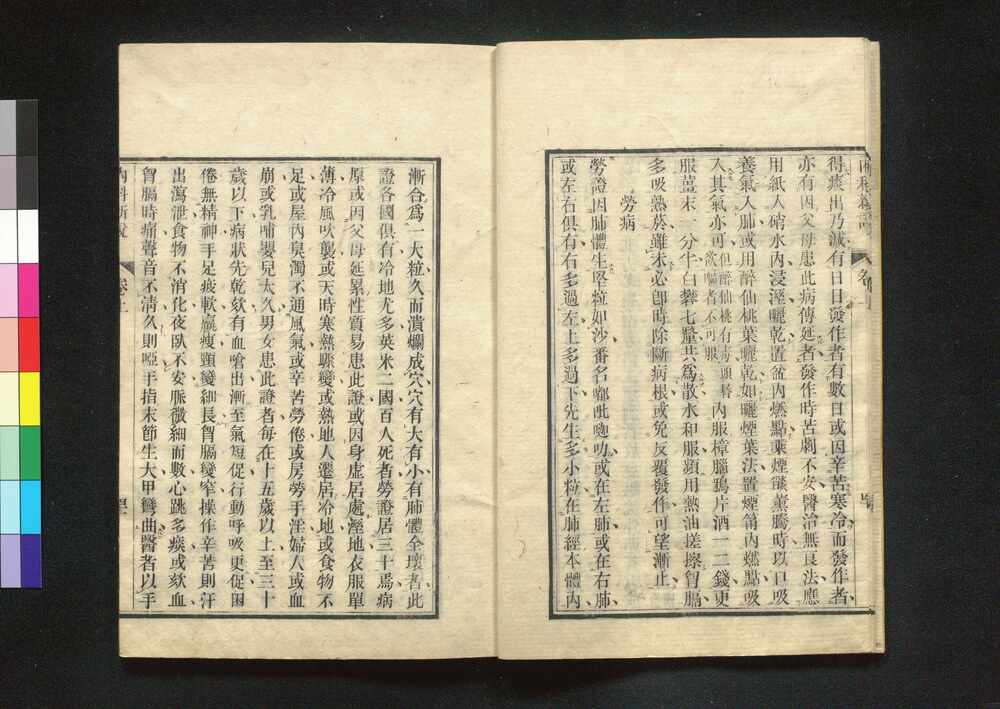 得痰出乃減有日日發作者有數日或因辛苦寒冷而發作者
亦有因父母患此病傳延者發作時苦劇不安醫治無良法應
用紙入硝水內浸溼曬乾置盆內燃點藥煙騰薰騰時以口吸
養氣入肺或用醉仙桃葉曬乾如曬煙葉法置煙筩內燃點吸
入其氣亦可但醉仙桃有毒頭唇當嘴者不可服內服樟腦鴉片酒一二錢更
服薑末一分半白礬七釐共為散水和服頻用熱油搓擦胷膈
多吸熱菸雖未必卽時除斷病根或免反覆發作可望漸止
勞病
勞證因肺體生堅粒如沙番名嘟吡唿叻或在左肺或在右肺
或左右俱有有多過左上多過下先生多小粒在肺經本體內
漸合爲一大粒久而潰爛成穴穴有大有小有肺體全壞者此
證各國俱有冷地尤多英米二國百人死者勞證居三十焉病
原或因父母延累性質易患此證或因身虛居處溼地衣服單
薄冷風吹襲或天時寒熱驟變或熱地人遷居冷地或食物不
足或屋內臭濁不通風氣或辛苦勞倦或房勞手淫婦人或血
崩或乳哺嬰兒太久男女患此證者每在十五歲以上至三十
歲以下病狀先乾欬有血嗆出漸至氣短促行動呼吸更促困
倦無精神手足疲軟羸瘦頸變細長胷膈變窄操作辛苦則汗
出瀉泄食物不消化夜臥不安脈微細而數心跳多痰或欬血
胷膈時痛聲音不淸久則啞手指末節生大甲彎曲醫者以手
內科新說
卷上